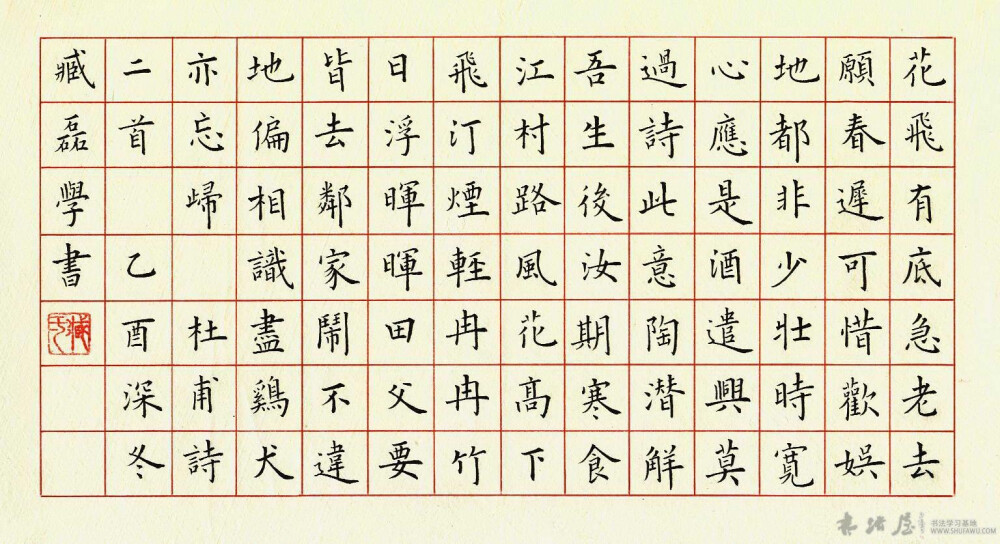 花飛有底急老去
願春遲可惜歡娛
地都非少壯時寬
心應是酒遣興莫
過詩此意陶潛解
吾生後汝期寒食
江村路風花高下
飛汀煙輕冉冉竹
日浮暉暉田父要
皆去鄰家鬧不違
地偏相識盡鷄犬
亦忘歸 杜甫詩
二首 乙酉深冬
臧磊學書
臧氏
书法屋
书法学习基地
WWW.SHUFAWU.COM